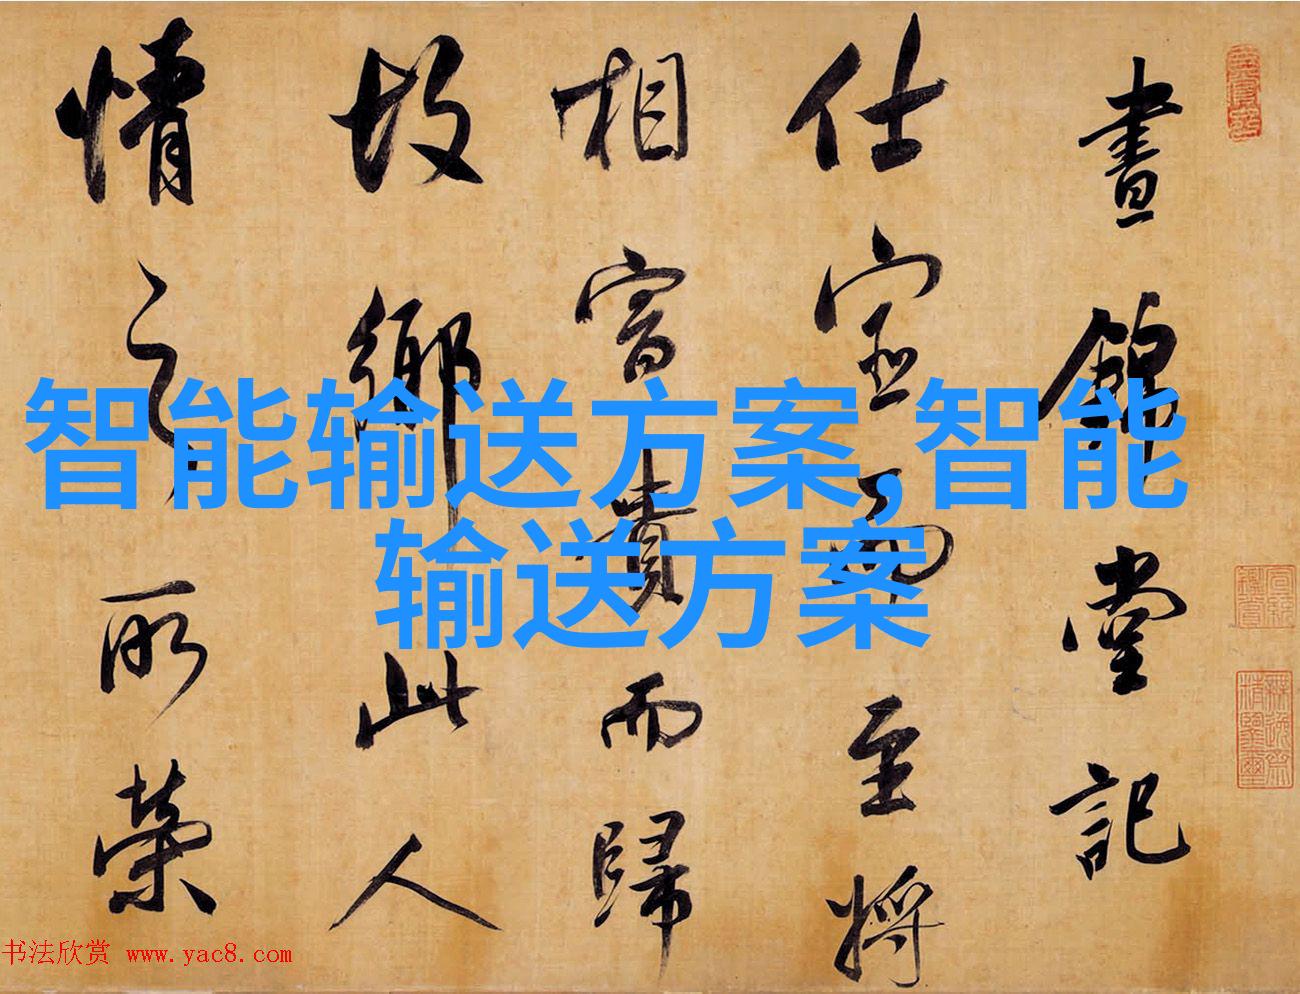 晝錦堂記
仕宦而至將
相富貴而歸
故鄉此人
情之所榮
智能输送方案,智能
输送方案
书法欣赏 www.yac8.com